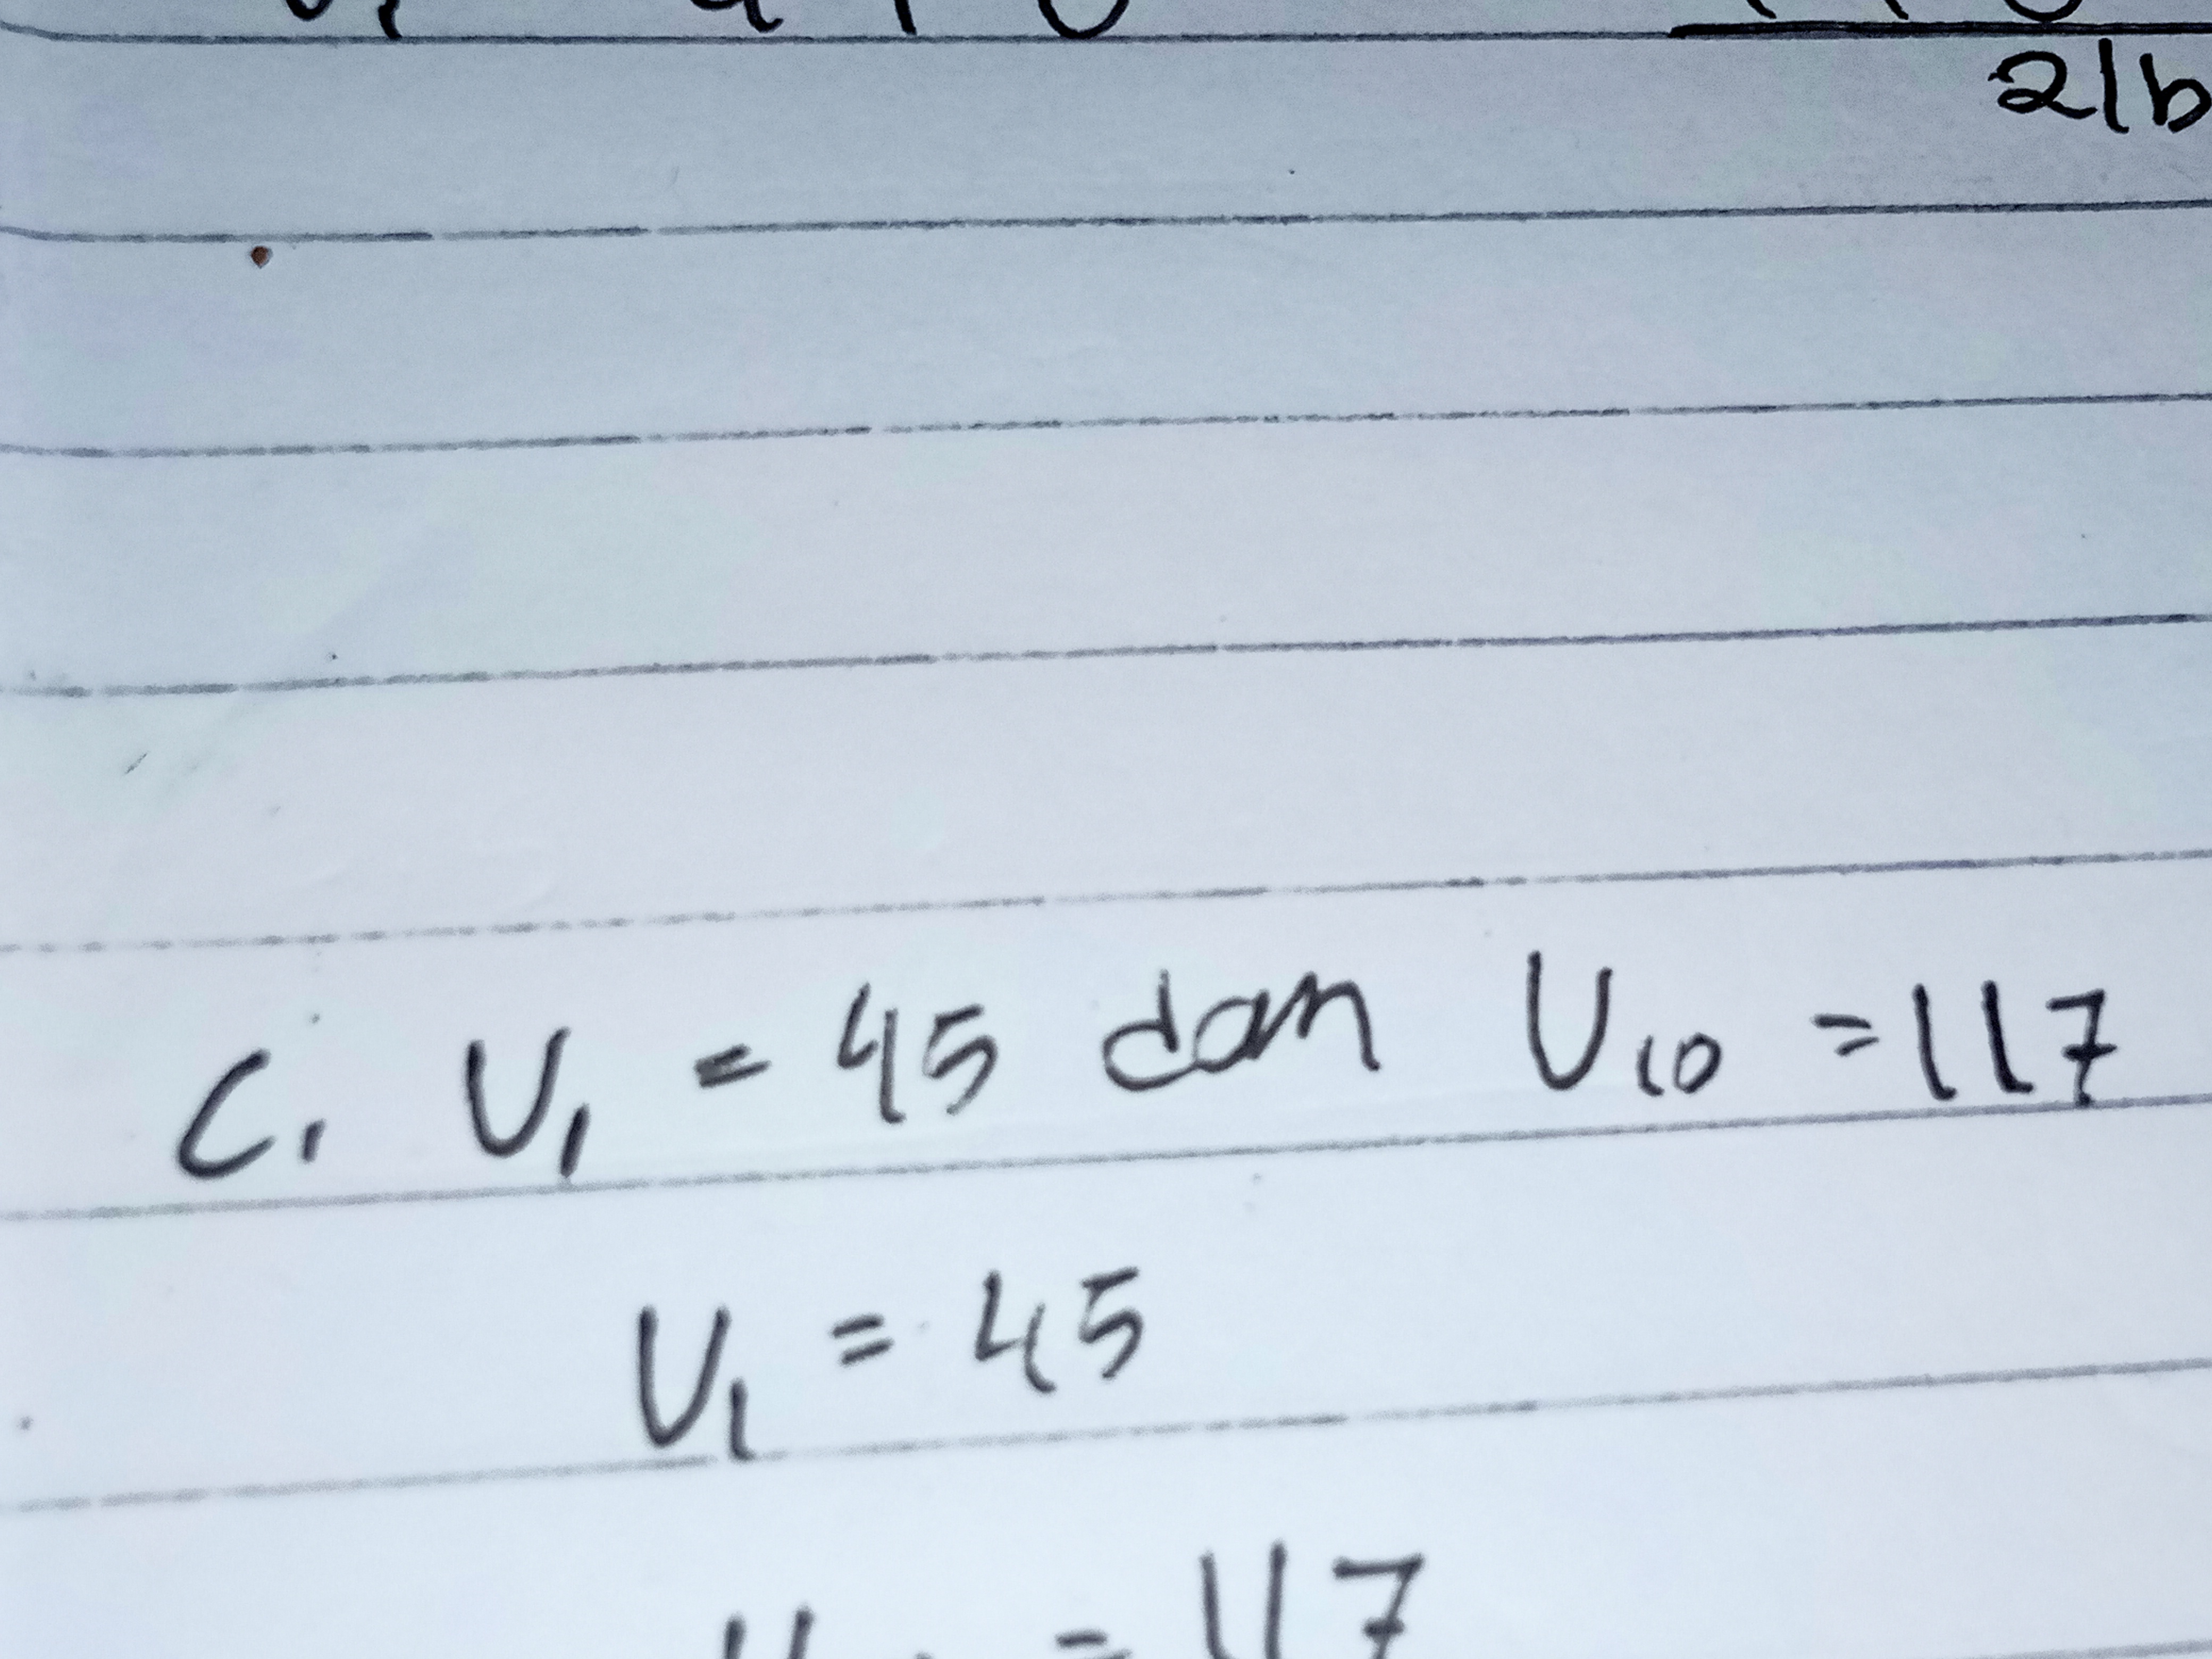 21b
C. U₁ = 45 dan U₁₀ = 117
U₁ = 45
= 117